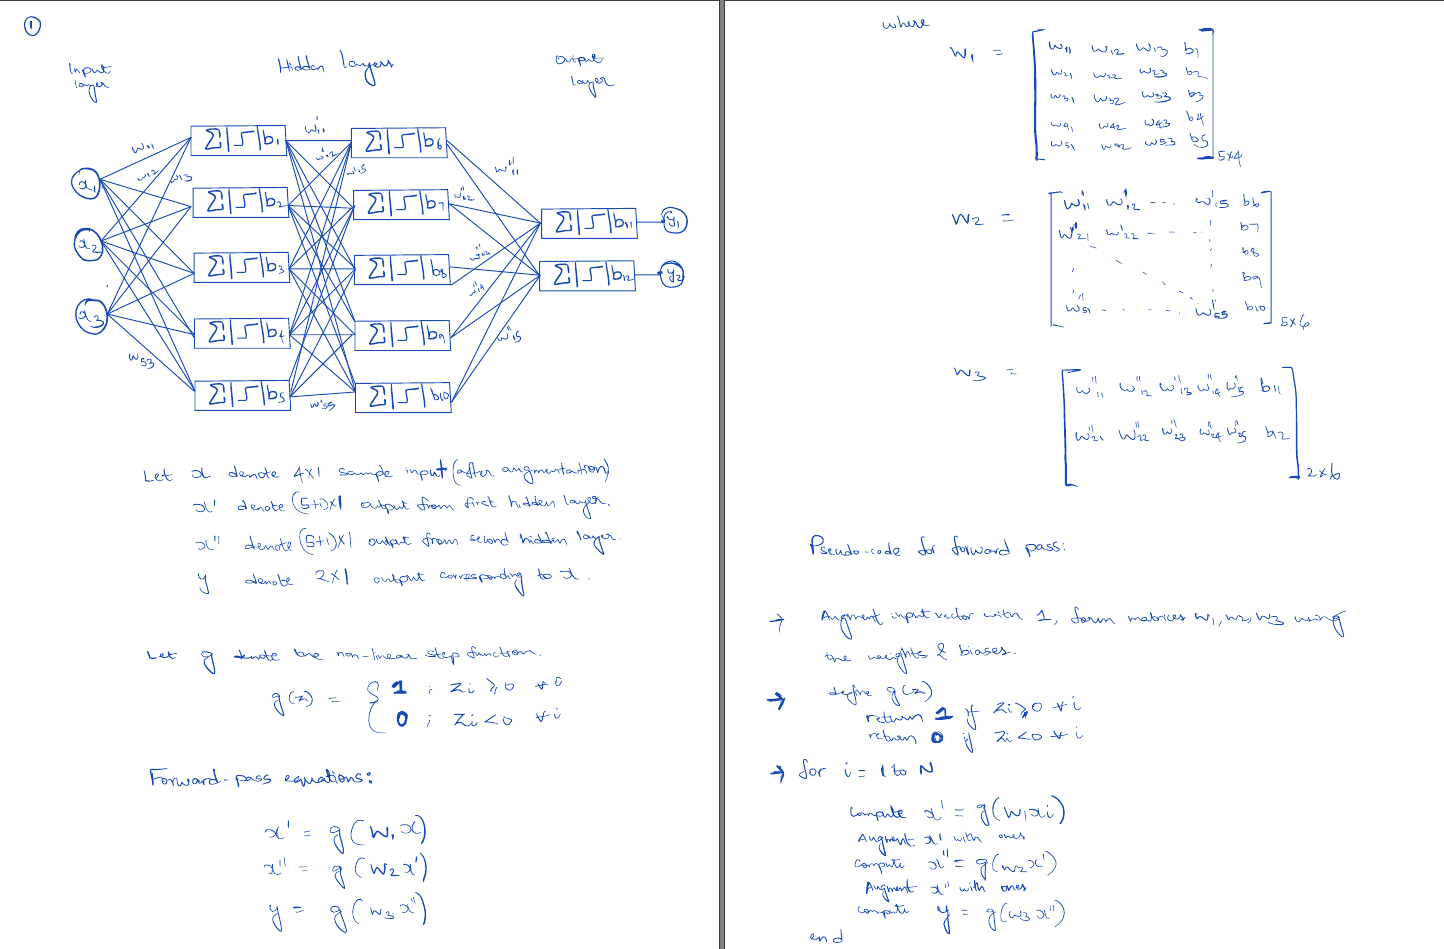 1
Input layer
Hidden layers
Output layer
w11
w12
w13
w53
Σ b1
Σ b2
Σ b3
Σ b4
Σ b5
w'11
w'12
w'15
w'55
Σ b6
Σ b7
Σ b8
Σ b9
Σ b10
w"11
w"12
w"13
w"14
w"15
Σ b11
Σ b12
x1
x2
x3
y1
y2
Let x denote 4x1 sample input (after augmentation)
x' denote (5+1)x1 output from first hidden layer.
x" denote (5+1)x1 output from second hidden layer.
y denote 2x1 output corresponding to x.
Let g denote the non-linear step function.
g(z) = { 1 ; zi ≥ 0 ∀ i
0 ; zi < 0 ∀ i
Forward-pass equations:
x' = g(w1 x)
x" = g(w2 x')
y = g(w3 x")
where
w1 = [ w11 w12 w13 b1
w21 w22 w23 b2
w31 w32 w33 b3
w41 w42 w43 b4
w51 w52 w53 b5 ] 5x4
w2 = [ w'11 w'12 --- w'15 b6
w'21 w'22 - - - b7
b8
b9
w'51 - - - - w'55 b10 ] 5x6
w3 = [ w"11 w"12 w"13 w"14 w"15 b11
w"21 w"22 w"23 w"24 w"25 b12 ] 2x6
Pseudo-code for forward pass:
→ Augment input vector with 1, form matrices w1, w2, w3 using
the weights & biases.
→ define g(z)
return 1 if zi ≥ 0 ∀ i
return 0 if zi < 0 ∀ i
→ for i = 1 to N
compute x' = g(w1xi)
Augment x' with ones
compute x" = g(w2x')
Augment x" with ones
compute y = g(w3 x")
end